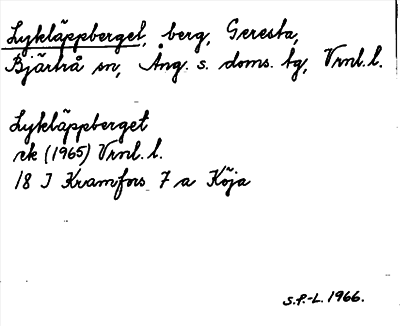 Lykläppberget, berg, Geresta,
Bjärtrå sn, Ång. s. doms. tg, Vrnl. l.
Lykläppberget
ek (1965) Vrnl. l.
18 I Kramfors 7 a Köja
S.P.-L. 1966.